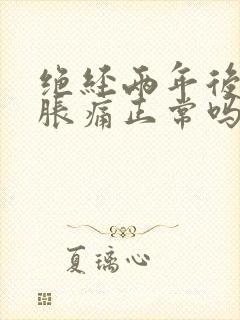 绝经两年后
胀痛正常吗
夏璃心